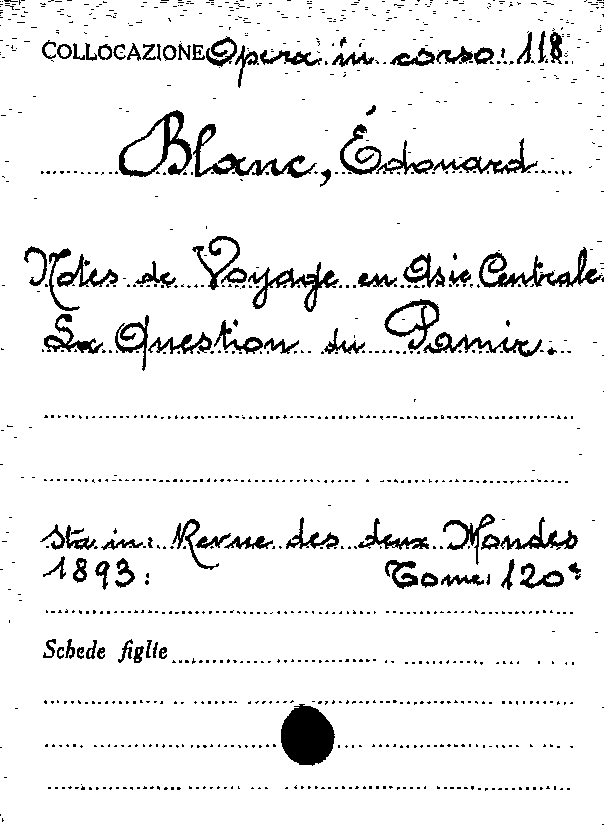 COLLOCAZIONE Opera in corso: 118
Blanc, Édouard
Notes de Voyage en Asie Centrale
La Question du Pamir.
Sta in: Revue des deux Mondes
1893: Tome: 120e
Schede figlie